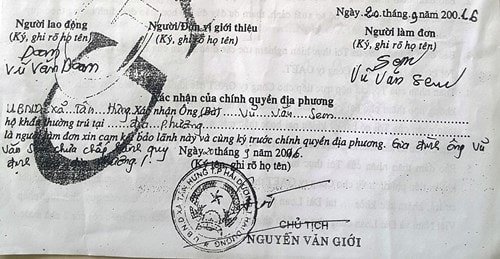 Ngày 20 tháng 9 năm 2006
Người lao động Người/Đơn vị giới thiệu Người làm đơn
(Ký, ghi rõ họ tên) (Ký, ghi rõ họ tên) (Ký, ghi rõ họ tên)
Đoan Sen
Vũ Văn Đoan Vũ Văn Sen
Xác nhận của chính quyền địa phương
UBND xã Tân Hưng Xác nhận Ông (Bà) Vũ Văn Sen
hộ khẩu thường trú tại địa phương
là người làm đơn xin cam kết bảo lãnh này và cùng ký trước chính quyền địa phương. Gia đình ông Vũ
Văn Sen chưa chấp hành quy
định địa phương!
Ngày 21 tháng 9 năm 2006
(Ký tên, ghi rõ họ tên)
U.B.N.D XÃ TÂN HƯNG T.P HẢI DƯƠNG T. HẢI DƯƠNG
CHỦ TỊCH
NGUYỄN VĂN GIỚI